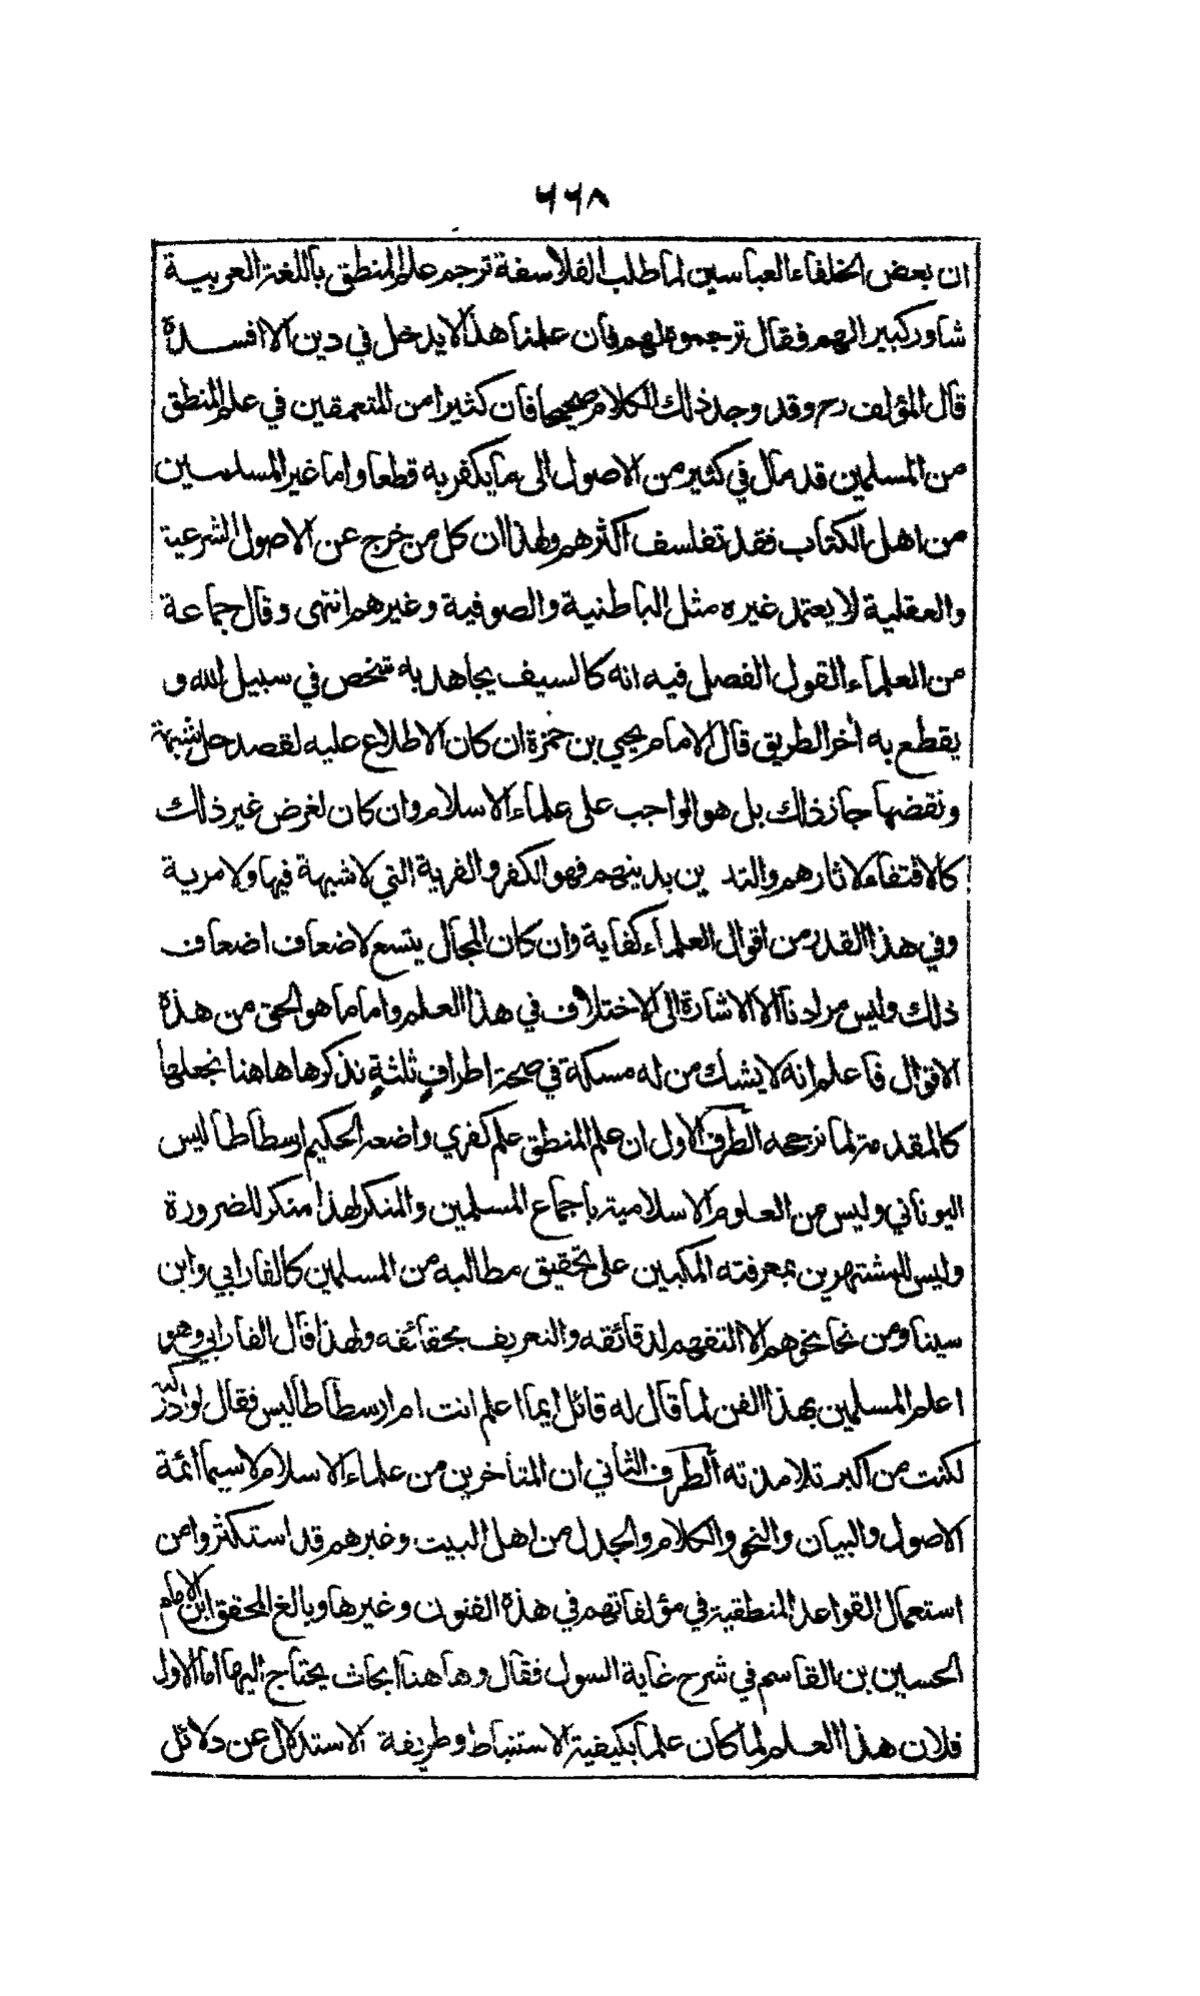 ٦٦٨
ان بعض الخلفاء العباسين لما طلب الفلاسفة ترجم علم المنطق باللغة العربية
شاور كبير الهم فقال ترجموه لهم فان علمنا هذا لا يدخل في دين الا افسده
قال المؤلف رح وقد وجد ذلك الكلام صحيحا فان كثيرا من المتعمقين في علم المنطق
من المسلمين قد مال في كثير من الاصول الى ما يكفر به قطعا واما غير المسلمين
من اهل الكتاب فقد تفلسف اكثرهم ولهذا ان كل من خرج عن الاصول الشرعية
والعقلية لا يعتمد غيره مثل الباطنية والصوفية وغيرهم انتهى وقال جماعة
من العلماء القول الفصل فيه انه كالسيف يجاهد به شخص في سبيل الله و
يقطع به اخر الطريق قال الامام يحيى بن حمزة ان كان الاطلاع عليه لقصد حل شبهة
ونقضها جاز ذلك بل هو الواجب على علماء الاسلام وان كان لغرض غير ذلك
كالاقتفاء لاثارهم والتد ين بدينهم فهو الكفر والفرية التي لا شبهة فيها ولا مرية
وفي هذا القدر من اقوال العلماء كفاية وان كان المجال يتسع لاضعاف اضعاف
ذلك وليس مرادنا الا الاشارة الى الاختلاف في هذا العلم واما ما هو الحق من هذه
الاقوال فاعلم انه لا يشك من له مسكة في صحة اطراف ثلثة نذكرها هاهنا نجعلها
كالمقدمة لما نرجحه الطرف الاول ان علم المنطق علم كفري واضعه الحكيم ارسطاطاليس
اليوناني وليس من العلوم الاسلامية باجماع المسلمين والمنكر لهذا منكر للضرورة
وليس للمشتهرين بمعرفته المكبين على تحقيق مطالبه من المسلمين كالفارابي وابن
سينا ومن نحا نحوهم الا التفهم لدقائقه والتعريف بحقائقه ولهذا قال الفارابي وهو
اعلم المسلمين بهذا الفن لما قال له قائل ايما اعلم انت ام ارسطاطاليس فقال لو ادركته
لكنت من اكبر تلامذته الطرف الثاني ان المتاخرين من علماء الاسلام لا سيما ائمة
الاصول والبيان والنحو والكلام والجدل من اهل البيت وغيرهم قد استكثروا من
استعمال القواعد المنطقية في مؤلفاتهم في هذه الفنون وغيرها وبالغ المحقق ابن الامام
الحسين بن القاسم في شرح غاية السول فقال وهاهنا ابحاث يحتاج اليها اما الاول
فلان هذا العلم لما كان علما بكيفية الاستنباط وطريقة الاستدلال عن دلائل